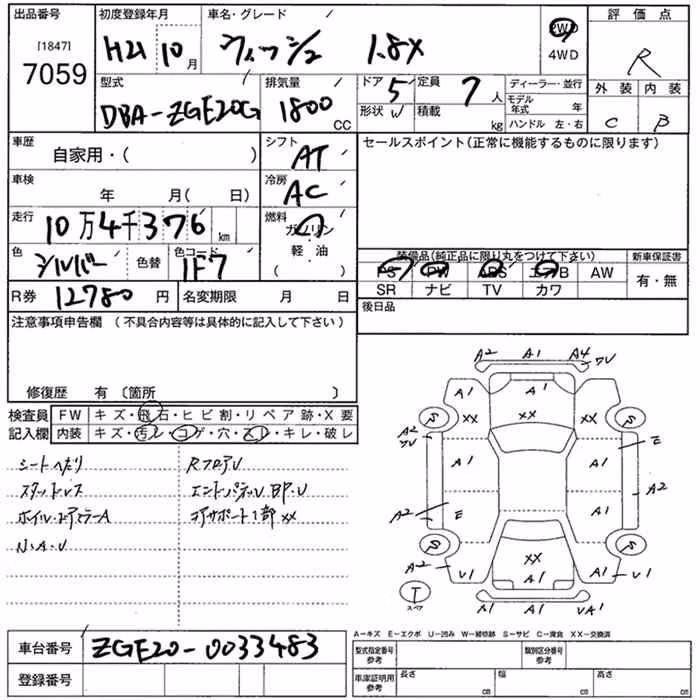 出品番号 初度登録年月 車名・グレード 評価点
[1847] 7059 H21 10月 ウィッシュ 1.8X 2WD 4WD R
型式 排気量 ドア 5 定員 7人 ディーラー・並行 外装 内装
DBA-ZGE20G 1800 CC 形状 W 積載 kg モデル年式 年 C B
ハンドル 左・右
車歴 シフト セールスポイント(正常に機能するものに限ります)
自家用・( ) AT
車検 冷房
年 月( 日) AC
走行 燃料
10万4千376km ガソリン
色 シルバー 色替 色コード 1F7 軽・油 ( )
装備品(純正品に限り丸をつけて下さい) 新車保証書
PS PW ABS エアB AW 有・無
SR ナビ TV カワ
R券 12780円 名変期限 月 日 後日品
注意事項申告欄 (不具合内容等は具体的に記入して下さい)
修復歴 有 〔箇所 〕
検査員 FW キズ・飛石・ヒビ割・リペア跡・X要
記入欄 内装 キズ・汚レ・コゲ・穴・スレ・キレ・破レ
シートヘタリ RフロアU
スタッドレス エンドパネルU BP.U
ホイル・エアスラーA コアサポート1部XX
N.A.U
A2 A1 A4 ワU
A1
XX XX XX
S S
A2 ワU E
A1 A1
A2
A2 E A1
S S
XX
A2 V1 A1 A1 V1
T スペア
A1 A1 UA1
A-キズ E-エクボ U-凹み W-補修跡 S-サビ C-腐食 XX-交換済
車台番号 ZGE20-0033483 型式指定番号 参考 類別区分番号 参考
登録番号 車庫証明用 参考 長さ cm 幅 cm 高さ cm